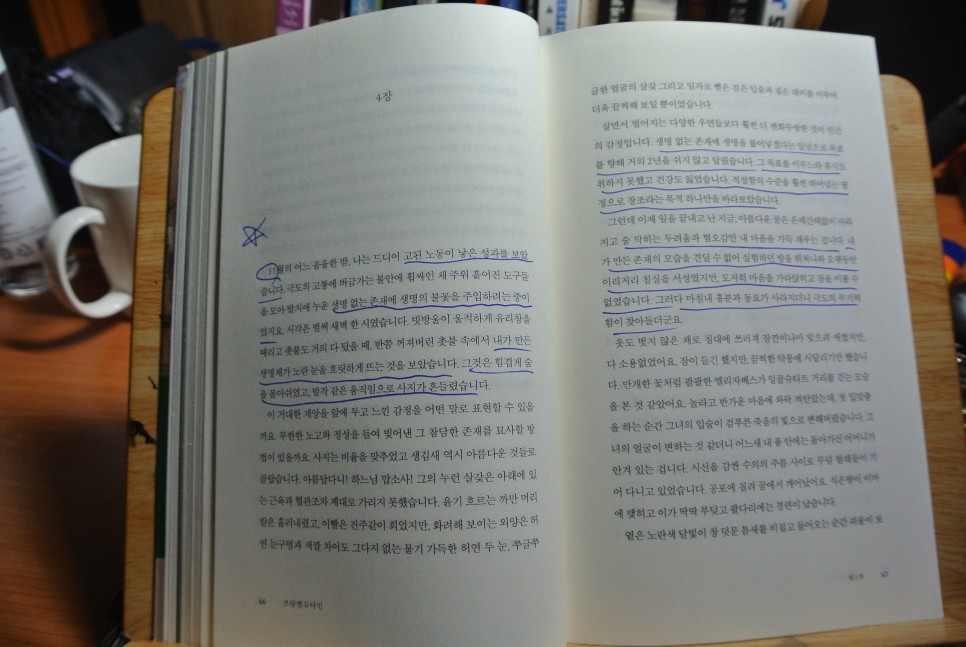 4장
11월의 어느 음울한 밤, 나는 드디어 고된 노동이 낳은 성과를 보았
습니다. 극도의 고통에 버금가는 불안에 휩싸인 채 주위 흩어진 도구들
을 모아 발치에 누운 생명 없는 존재에 생명의 불꽃을 주입하려는 중이
었지요. 시각은 벌써 새벽 한 시였습니다. 빗방울이 울적하게 유리창을
때리고 촛불도 거의 다 탔을 때, 반쯤 꺼져버린 촛불 속에서 내가 만든
생명체가 노란 눈을 흐릿하게 뜨는 것을 보았습니다. 그것은 힘겹게 숨
을 몰아쉬었고, 발작 같은 움직임으로 사지가 흔들렸습니다.
이 거대한 재앙을 앞에 두고 느낀 감정을 어떤 말로 표현할 수 있을
까요. 무한한 노고와 정성을 들여 빚어낸 그 참담한 존재를 묘사할 방
법이 있을까요. 사지는 비율을 맞추었고 생김새 역시 아름다운 것들로
골랐습니다. 아름답다니! 하느님 맙소사! 그의 누런 살갗은 아래에 있
는 근육과 혈관조차 제대로 가리지 못했습니다. 윤기 흐르는 까만 머리
칼은 흘러내렸고, 이빨은 진주같이 희었지만, 화려해 보이는 외양은 허
연 눈구멍과 색깔 차이도 그다지 없는 물기 가득한 허연 두 눈, 쭈글쭈
66 프랑켄슈타인
글한 얼굴의 살갗 그리고 일자로 뻗은 검은 입술과 짙은 대비를 이루어
더욱 끔찍해 보일 뿐이었습니다.
살면서 벌어지는 다양한 우연들보다 훨씬 더 변화무쌍한 것이 인간
의 감정입니다. 생명 없는 존재에 생명을 불어넣겠다는 일념으로 목표
를 향해 거의 2년을 쉬지 않고 달렸습니다. 그 목표를 이루느라 휴식도
취하지 못했고 건강도 잃었습니다. 적절함의 수준을 훨씬 뛰어넘는 열
정으로 창조라는 목적 하나만을 바라보았습니다.
그런데 이제 일을 끝내고 난 지금, 아름다운 꿈은 온데간데없이 사라
지고 숨 막히는 두려움과 혐오감만 내 마음을 가득 채우는 겁니다. 내
가 만든 존재의 모습을 견딜 수 없어 실험하던 방을 뛰쳐나와 오랫동안
이리저리 침실을 서성였지만, 도저히 마음을 가라앉히고 잠을 이룰 수
없었습니다. 그러다 마침내 흥분과 동요가 사라지더니 극도의 무기력
함이 찾아들더군요.
옷도 벗지 않은 채로 침대에 쓰러져 잠깐이나마 잊으려 애썼지만,
다 소용없었어요. 잠이 들긴 했지만, 끔찍한 악몽에 시달리기만 했습니
다. 만개한 꽃처럼 팔팔한 엘리자베스가 잉골슈타트 거리를 걷는 모습
을 본 것 같았어요. 놀라고 반가운 마음에 와락 껴안았는데, 첫 입맞춤
을 하는 순간 그녀의 입술이 검푸른 죽음의 빛으로 변해버렸습니다. 그
녀의 얼굴이 변하는 것 같더니 어느새 내 품 안에는 돌아가신 어머니가
안겨 있는 겁니다. 시신을 감싼 수의의 주름 사이로 무덤 벌레들이 기
어 다니고 있었습니다. 공포에 질려 꿈에서 깨어났어요. 식은땀이 이마
에 맺히고 이가 딱딱 부딪고 팔다리에는 경련이 났습니다.
옅은 노란색 달빛이 창 덧문 틈새를 비집고 들어오는 순간
제1부 67